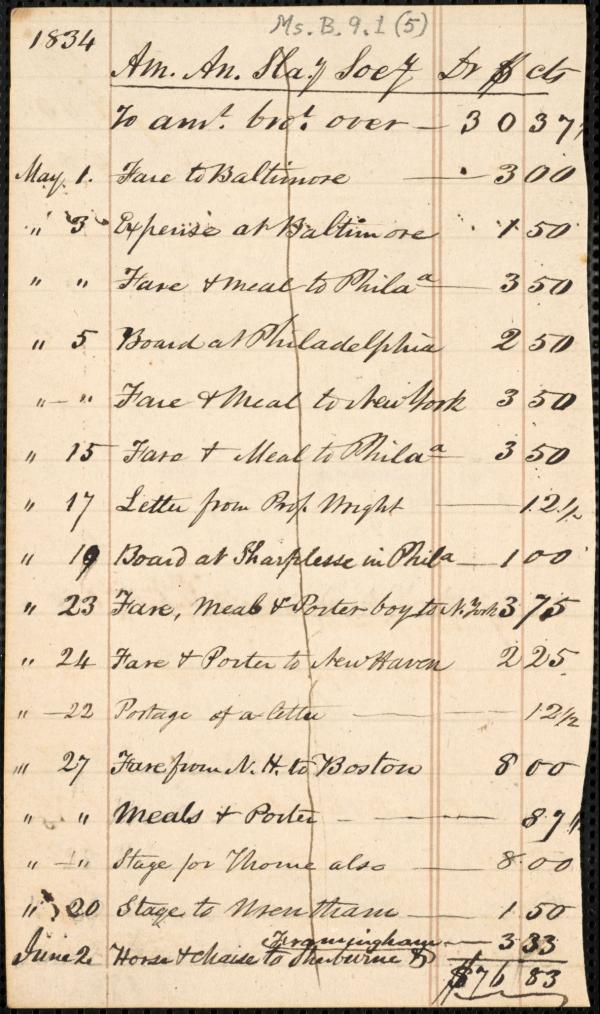 Ms. B. 9. 1 (5)
1834
Am. An. Sla.y Soc.y Dr $ cts
To am.t bro.t over — 30 37 1/2
May 1. Fare to Baltimore — 3 00
" 3 Expense at Baltimore 1 50
" " Fare & meal to Phila a — 3 50
" 5 Board at Philadelphia 2 50
" — " Fare & Meal to New York 3 50
" 15 Fare & Meal to Phila a — 3 50
" 17 Letter from Prof. Wright — 12 1/2
" 19 Board at Sharplesse in Phila — 1 00
" 23 Fare, Meals & Porter boy to N. York 3 75
" 24 Fare & Porter to New Haven 2 25
" — 22 Postage of a letter — 12 1/2
" 27 Fare from N. H. to Boston 8 00
" " Meals & Porter — 87 1/2
" — " Stage for Thome also — 8.00
" 20 Stage to Wrentham — 1 50
Framingham — 3 33
June 2 Horse & Chaise to Sherburne &
$76 83